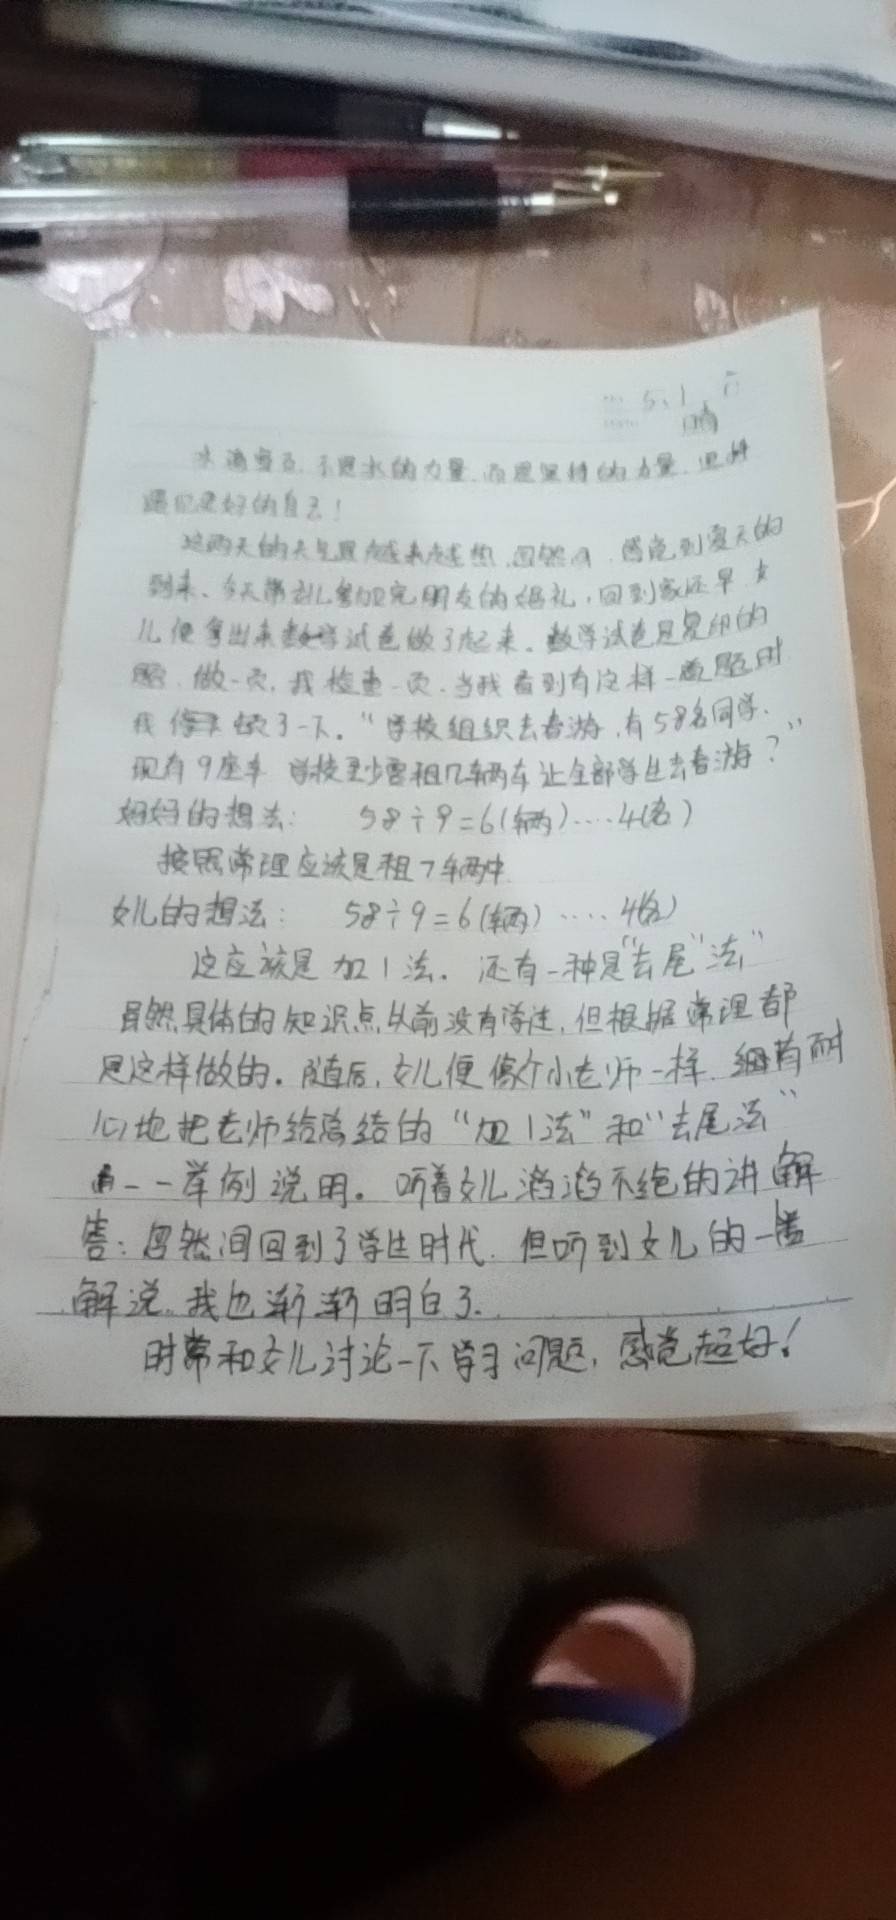 5.1
晴
水滴穿石,不是水的力量,而是坚持的力量,
遇见更好的自己!
这两天的天气是越来越热,忽然间,感觉到夏天的
到来、今天带女儿参加完朋友的婚礼,回到家还早,女
儿便拿出来数学试卷做了起来。数学试卷是复印的
题,做一页,我检查一页.当我看到有这样一道题时
我停顿了一下。“学校组织去春游,有58名同学.
现有9座车 学校至少要租几辆车让全部学生去春游?”
妈妈的想法: 58÷9=6(辆)····4(名)
按照常理应该是租7辆车
女儿的想法: 58÷9=6(辆)····4(名)
这应该是加1法.还有一种是“去尾”法”
虽然具体的知识点从前没有学过,但根据常理都
是这样做的。随后,女儿便像个小老师一样.细有耐
心地把老师给总结的“加1法”和“去尾法”
一一举例说明。听着女儿滔滔不绝的讲解
忽然间回到了学生时代.但听到女儿的一番
解说。我也渐渐明白了.
时常和女儿讨论一下学习问题,感觉超好!